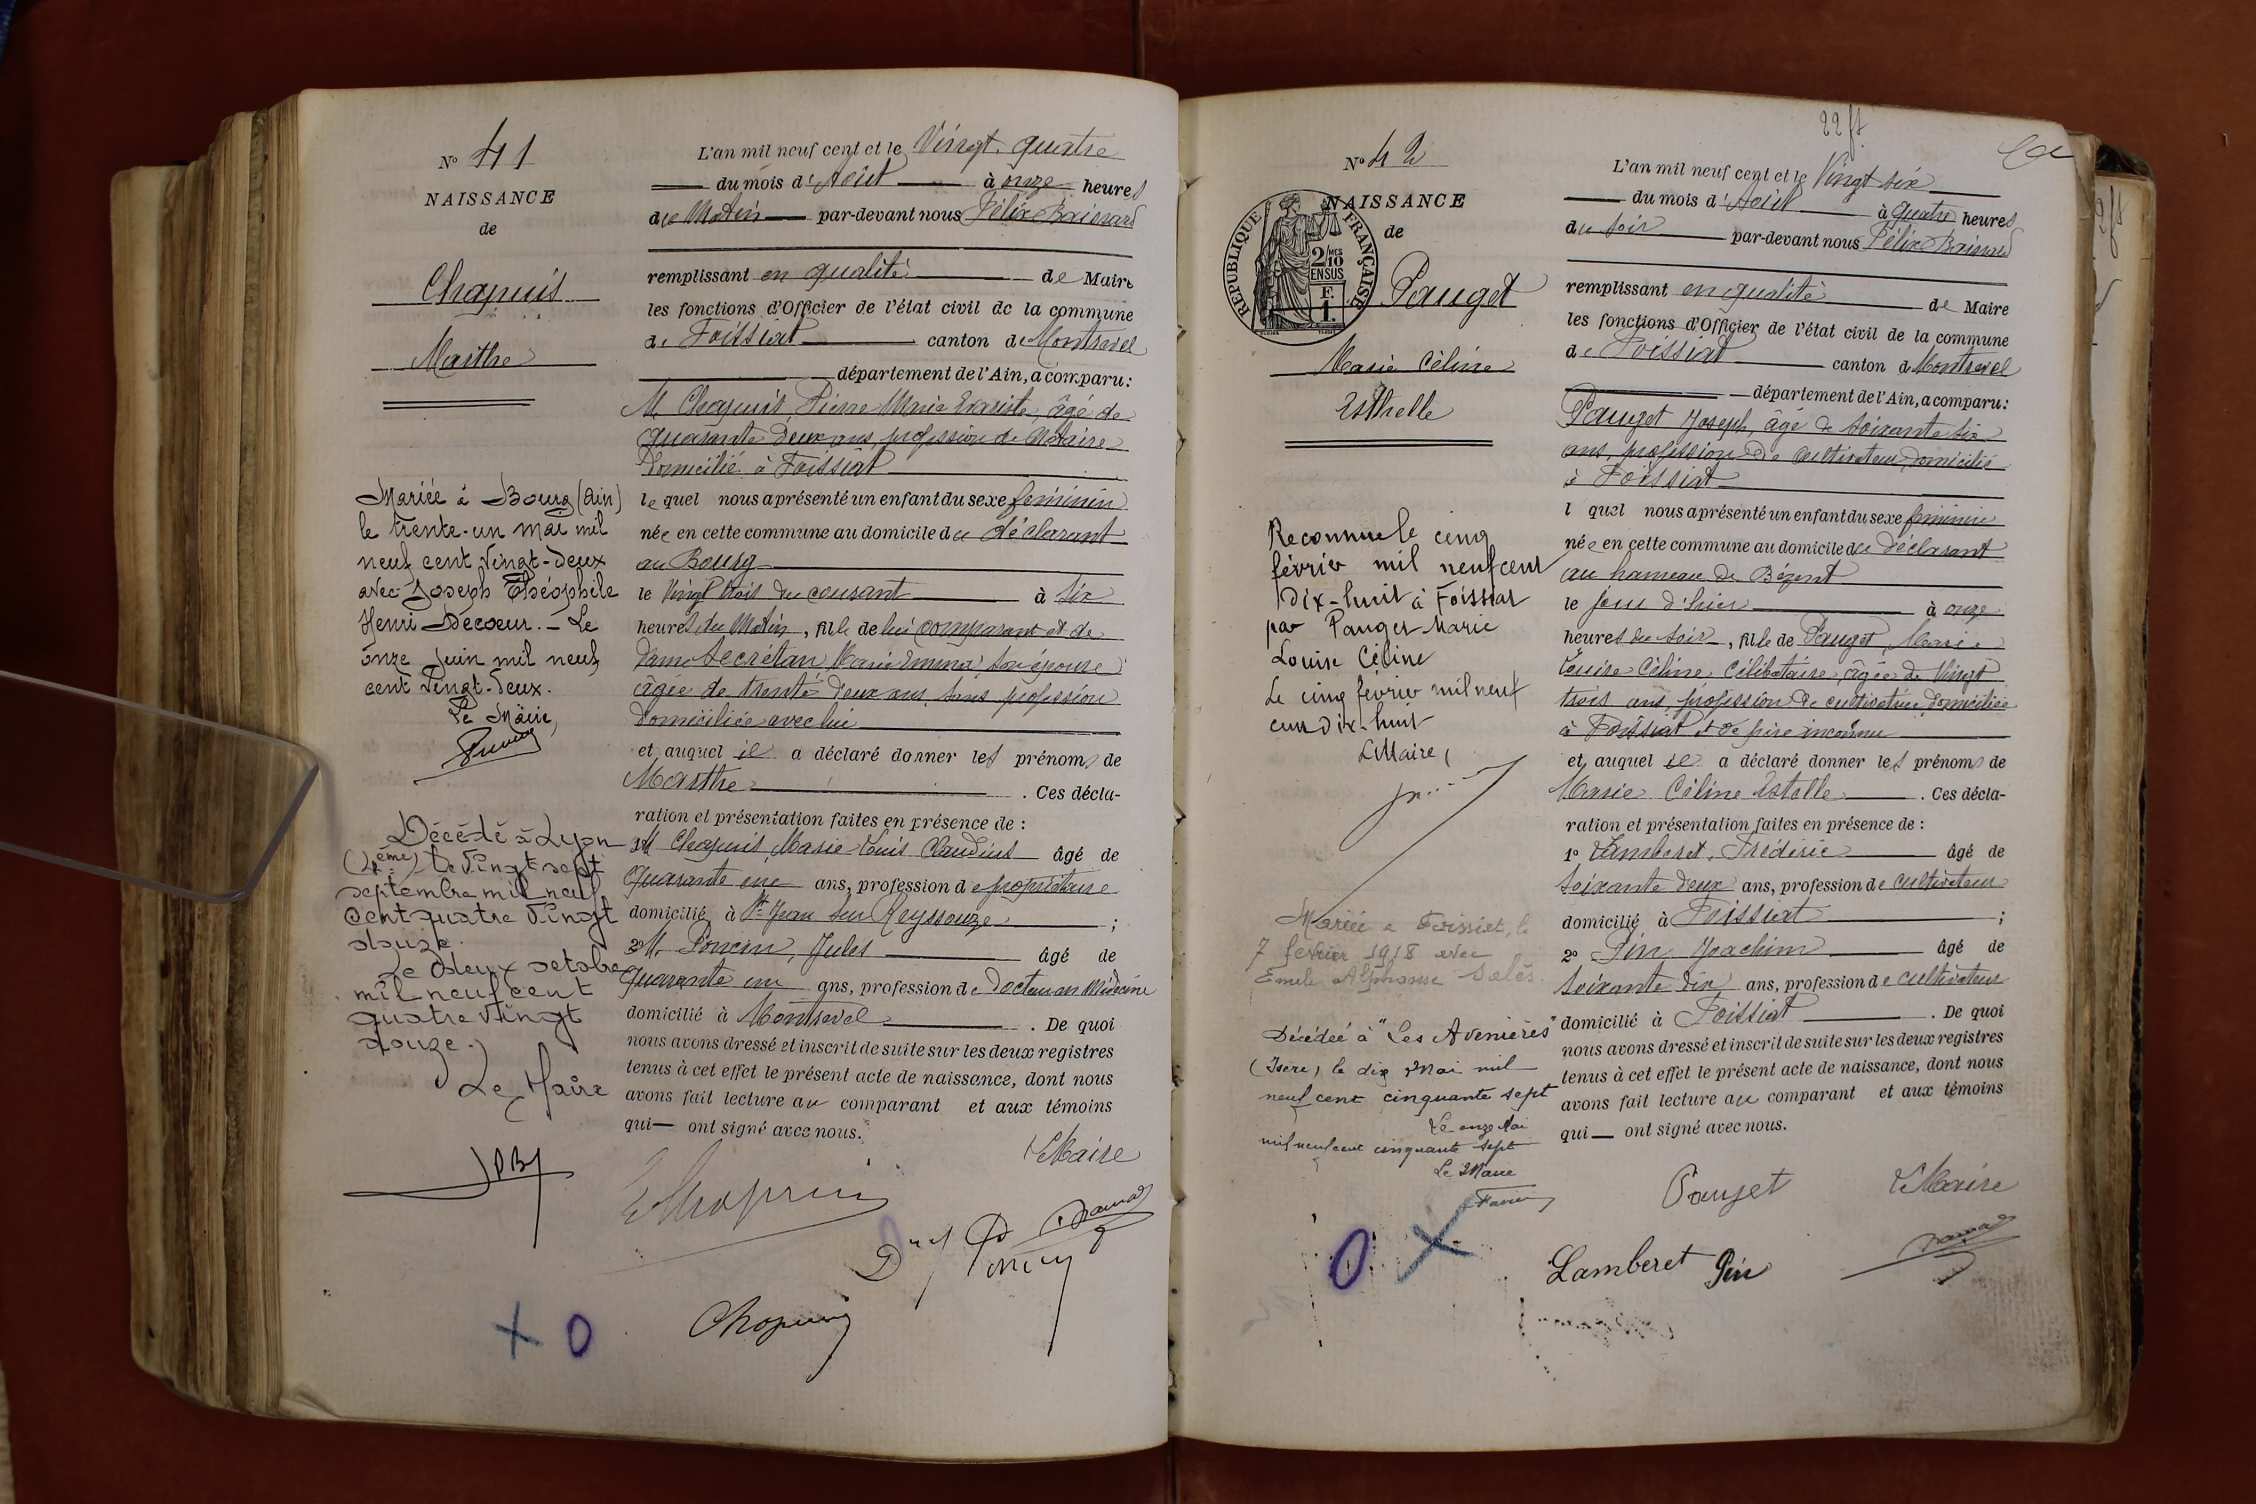 N° 41
NAISSANCE
de
Chapuis
Marthe
Mariée à Bourg (Ain)
le trente-un mai mil
neuf cent vingt-deux
avec Joseph Théophile
Henri Decoeur. - Le
onze juin mil neuf
cent vingt-deux.
Le Maire,
Décédé à Lyon
(4ème) le vingt sept
septembre mil neuf
cent quatre vingt
douze.
Le deux octobre
mil neuf cent
quatre vingt
douze.
Le Maire
L'an mil neuf cent et le Vingt quatre
du mois d'Août à onze heures
du Matin par-devant nous Félix
remplissant en qualité de Maire
les fonctions d'Officier de l'état civil de la commune
de Foissiat canton de Montrevel
département de l'Ain, a comparu:
M. Chapuis, Pierre Marie Evariste, âgé de
quarante deux ans, profession de Notaire
domicilié à Foissiat
lequel nous a présenté un enfant du sexe féminin
née en cette commune au domicile du déclarant
au Bourg
le Vingt trois du courant à six
heures du Matin, fille de lui comparant et de
dame Secrétan Marie Emma son épouse
âgée de trente deux ans, sans profession
domiciliée avec lui
et auquel il a déclaré donner les prénoms de
Marthe. Ces décla-
ration et présentation faites en présence de :
1° M Chapuis, Marie Louis Claudius âgé de
quarante un ans, profession de propriétaire
domicilié à St Jean sur Reyssouze ;
2° M. Poncin, Jules âgé de
quarante un ans, profession de Docteur en Médecine
domicilié à Montrevel. De quoi
nous avons dressé et inscrit de suite sur les deux registres
tenus à cet effet le présent acte de naissance, dont nous
avons fait lecture au comparant et aux témoins
qui ont signé avec nous.
Le Maire
E Chapuis
Dr J Poncin
Chapuis
22 ff
N° 42
NAISSANCE
de
REPUBLIQUE FRANÇAISE
2/10
EN SUS
F.
1.
Pauget
Marie Céline
Esthelle
Reconnue le cinq
février mil neuf cent
dix-huit à Foissiat
par Pauget Marie
Louise Céline
Le cinq février mil neuf
cent dix-huit
Le Maire,
Mariée à Foissiat, le
7 février 1918 avec
Emile Alphonse Salès
Décédée à "Les Avenières"
(Isère) le dix Mai mil
neuf cent cinquante sept
Le onze Mai
mil neuf cent cinquante sept
Le Maire
L'an mil neuf cent et le Vingt six
du mois d'Août à quatre heures
du soir par-devant nous Félix
remplissant en qualité de Maire
les fonctions d'Officier de l'état civil de la commune
de Foissiat canton de Montrevel
département de l'Ain, a comparu:
Pauget Joseph, âgé de soixante six
ans, profession de cultivateur, domicilié
à Foissiat
l quel nous a présenté un enfant du sexe féminin
née en cette commune au domicile du déclarant
au hameau de Bézent
le jour d'hier à onze
heures du soir, fille de Pauget, Marie
Louise Céline, célibataire, âgée de vingt
trois ans, profession de cultivatrice, domiciliée
à Foissiat et de père inconnu
et auquel il a déclaré donner les prénoms de
Marie Céline Estelle. Ces décla-
ration et présentation faites en présence de :
1° Lamberet, Frédéric âgé de
soixante deux ans, profession de cultivateur
domicilié à Foissiat ;
2° Pin, Joachim âgé de
soixante dix ans, profession de cultivateur
domicilié à Foissiat. De quoi
nous avons dressé et inscrit de suite sur les deux registres
tenus à cet effet le présent acte de naissance, dont nous
avons fait lecture au comparant et aux témoins
qui ont signé avec nous.
Pauget Le Maire
Lamberet Pin